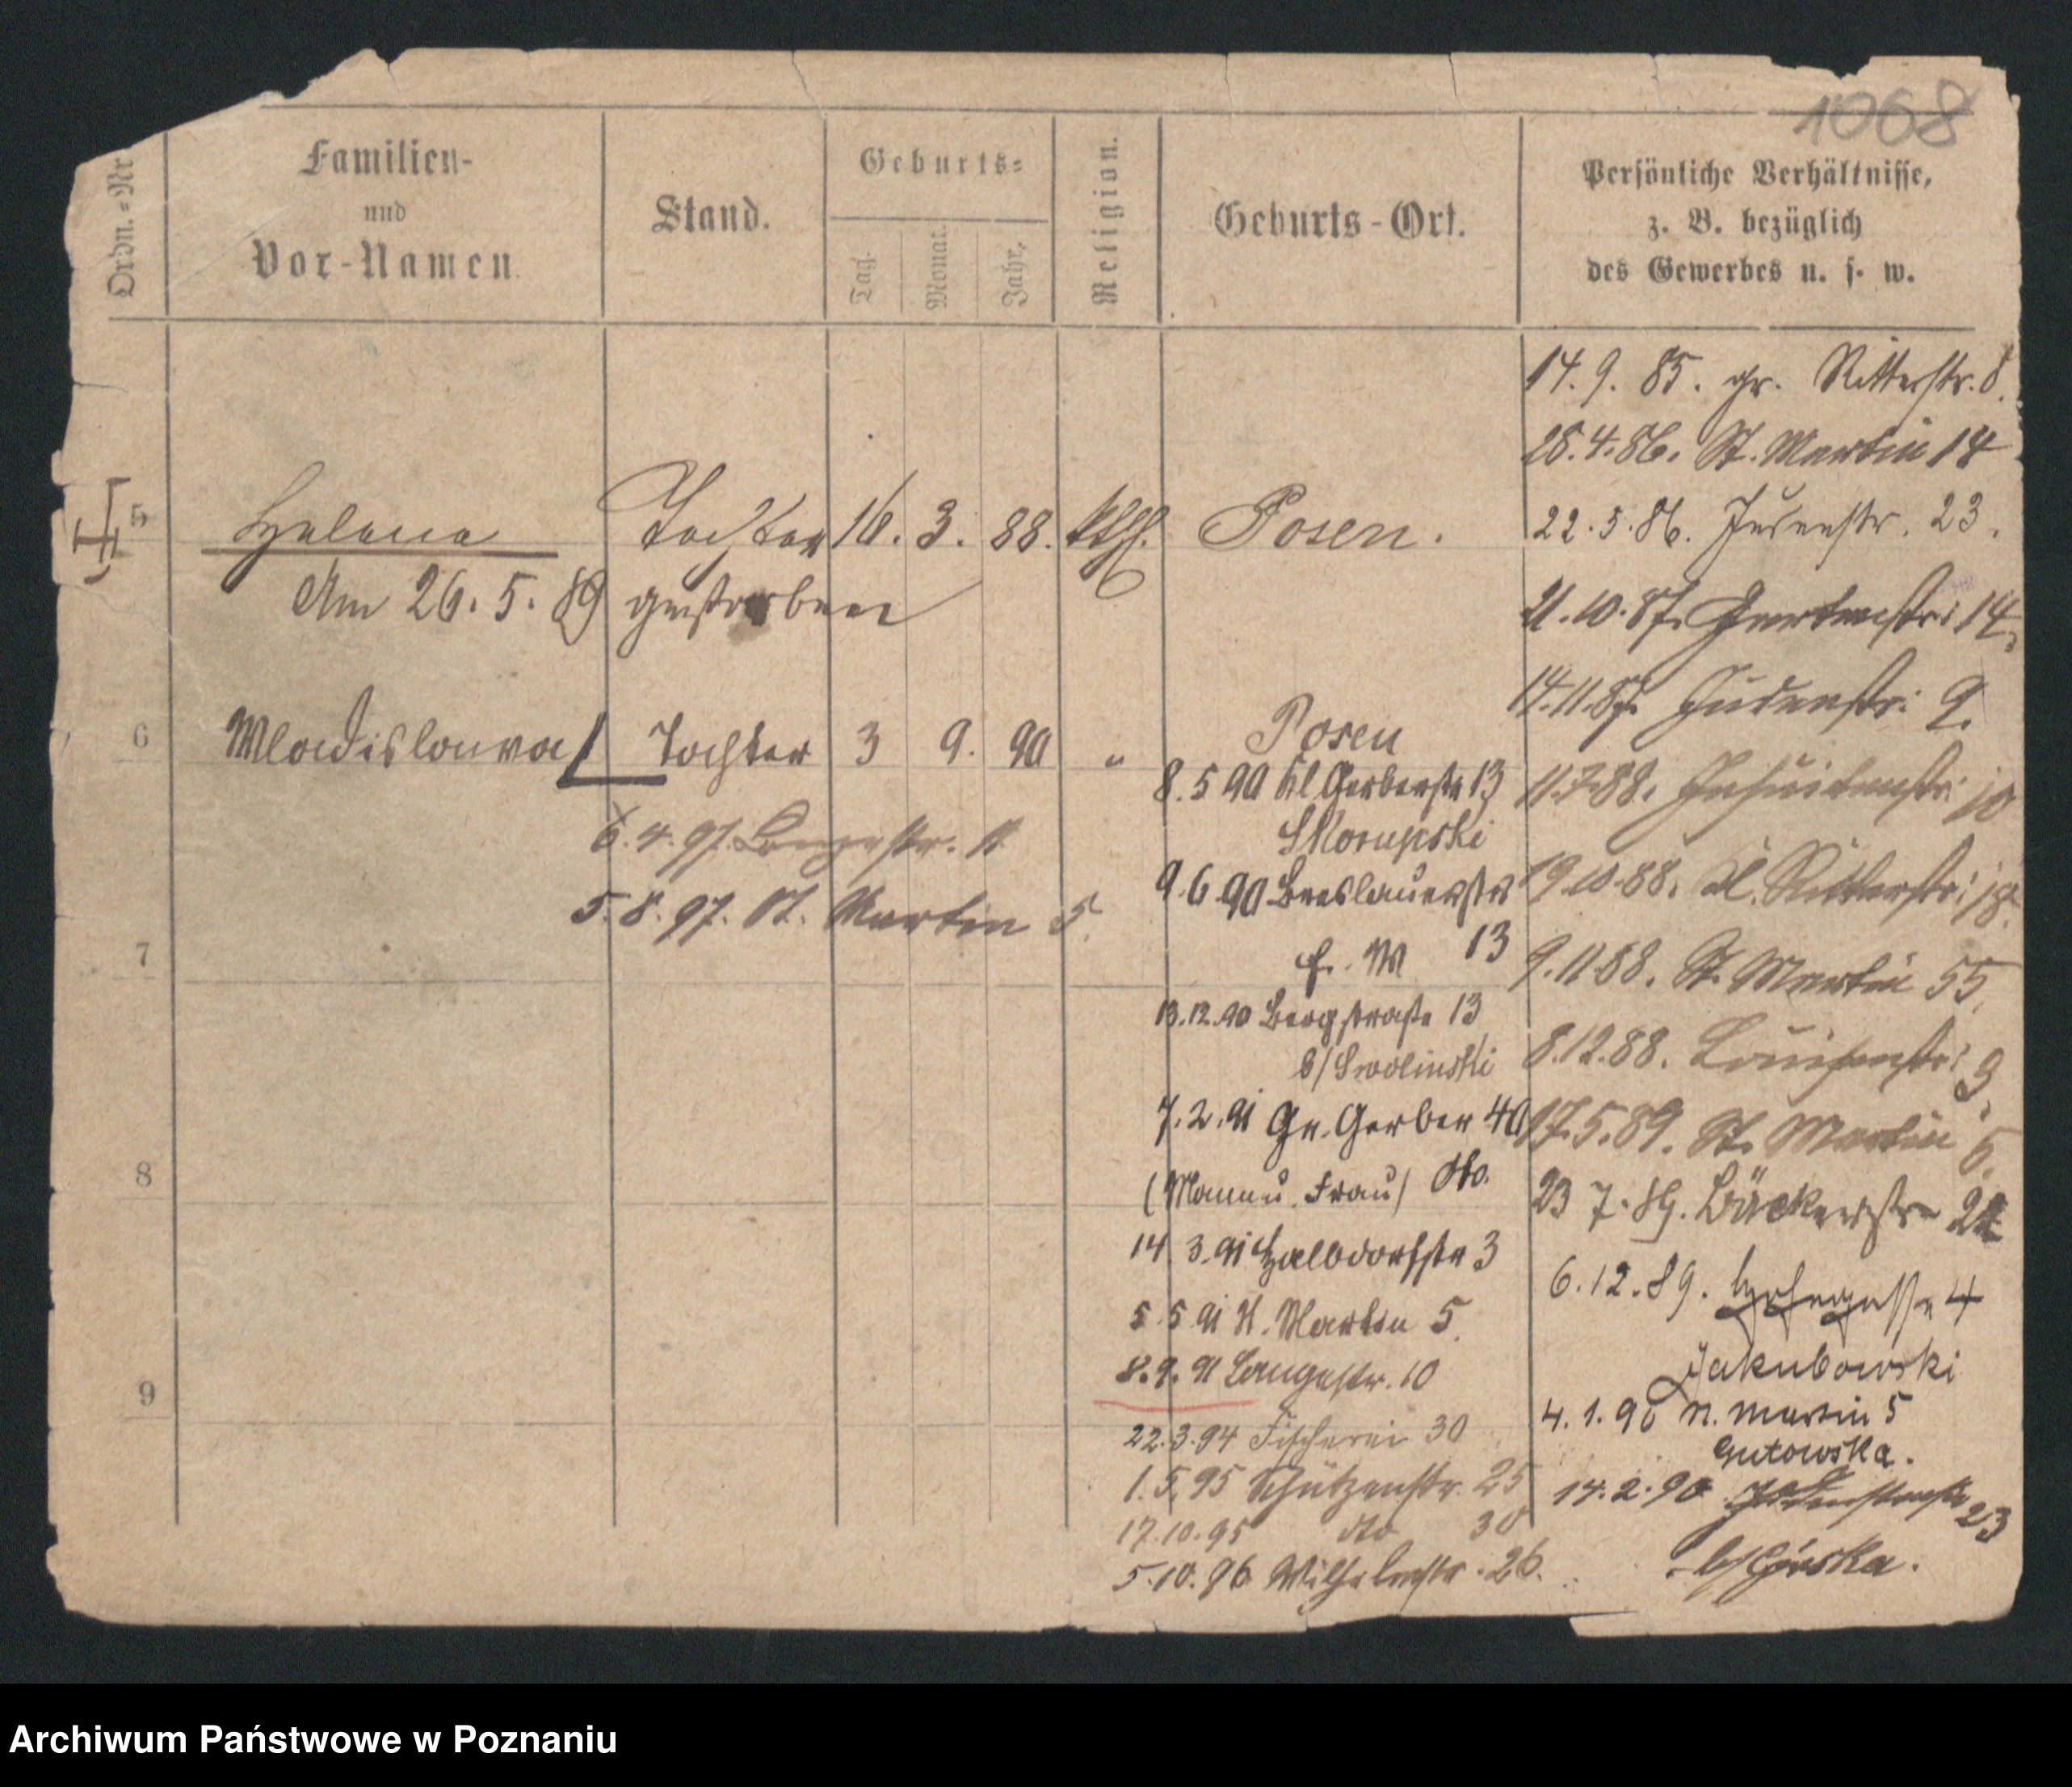 1068
Ordn.-Nr
Familien-
und
Vor-Namen.
Stand.
Geburts-
Tag.
Monat.
Jahr.
Religion.
Geburts-Ort.
Persönliche Verhältnisse,
z. B. bezüglich
des Gewerbes u. s. w.
5 Helena Tochter 16. 3. 88. kth. Posen.
Am 26. 5. 89 gestorben
6 Wladislawa Tochter 3 9. 90 " Posen
6. 4. 97. Langestr. 11
5. 8. 97. St. Martin 5.
7
8
9
8. 5 90 Kl Gerberstr 13
Skorupski
9. 6 90 Breslauerstr
13
13.12.90 Bergstraße 13
b/ Swolinski
7. 2. 91 Gr. Gerber 40
(Mann u. Frau) dto.
14. 3. 91 Halbdorfstr 3
5. 5 91 St. Martin 5.
8. 9. 91 Langestr. 10
22. 3. 94 Fischerei 30
1. 5. 95 Schützenstr. 25
17. 10. 95 dto 30
5. 10. 96 Wilhelmstr. 26.
14. 9. 85. gr. Ritterstr. 8.
28. 4. 86. St. Martin 14
22. 5. 86. Judenstr. 23.
21. 10. 87. Gartenstr. 14.
14. 11. 87. Judenstr. 9.
11. 7. 88. Jesuitenstr. 10
19. 10. 88. Kl. Ritterstr. 18.
9. 11. 88. St. Martin 55.
8. 12. 88. Louisenstr. 9.
17. 5. 89. St. Martin 5.
23 7. 89. Bäckerstr 22
6. 12. 89. Hohegasse 4
Jakubowski
4. 1. 90 St. Martin 5
Gutowska.
14. 2. 90 Judenstraße 23
b/ Górska.
Archiwum Państwowe w Poznaniu